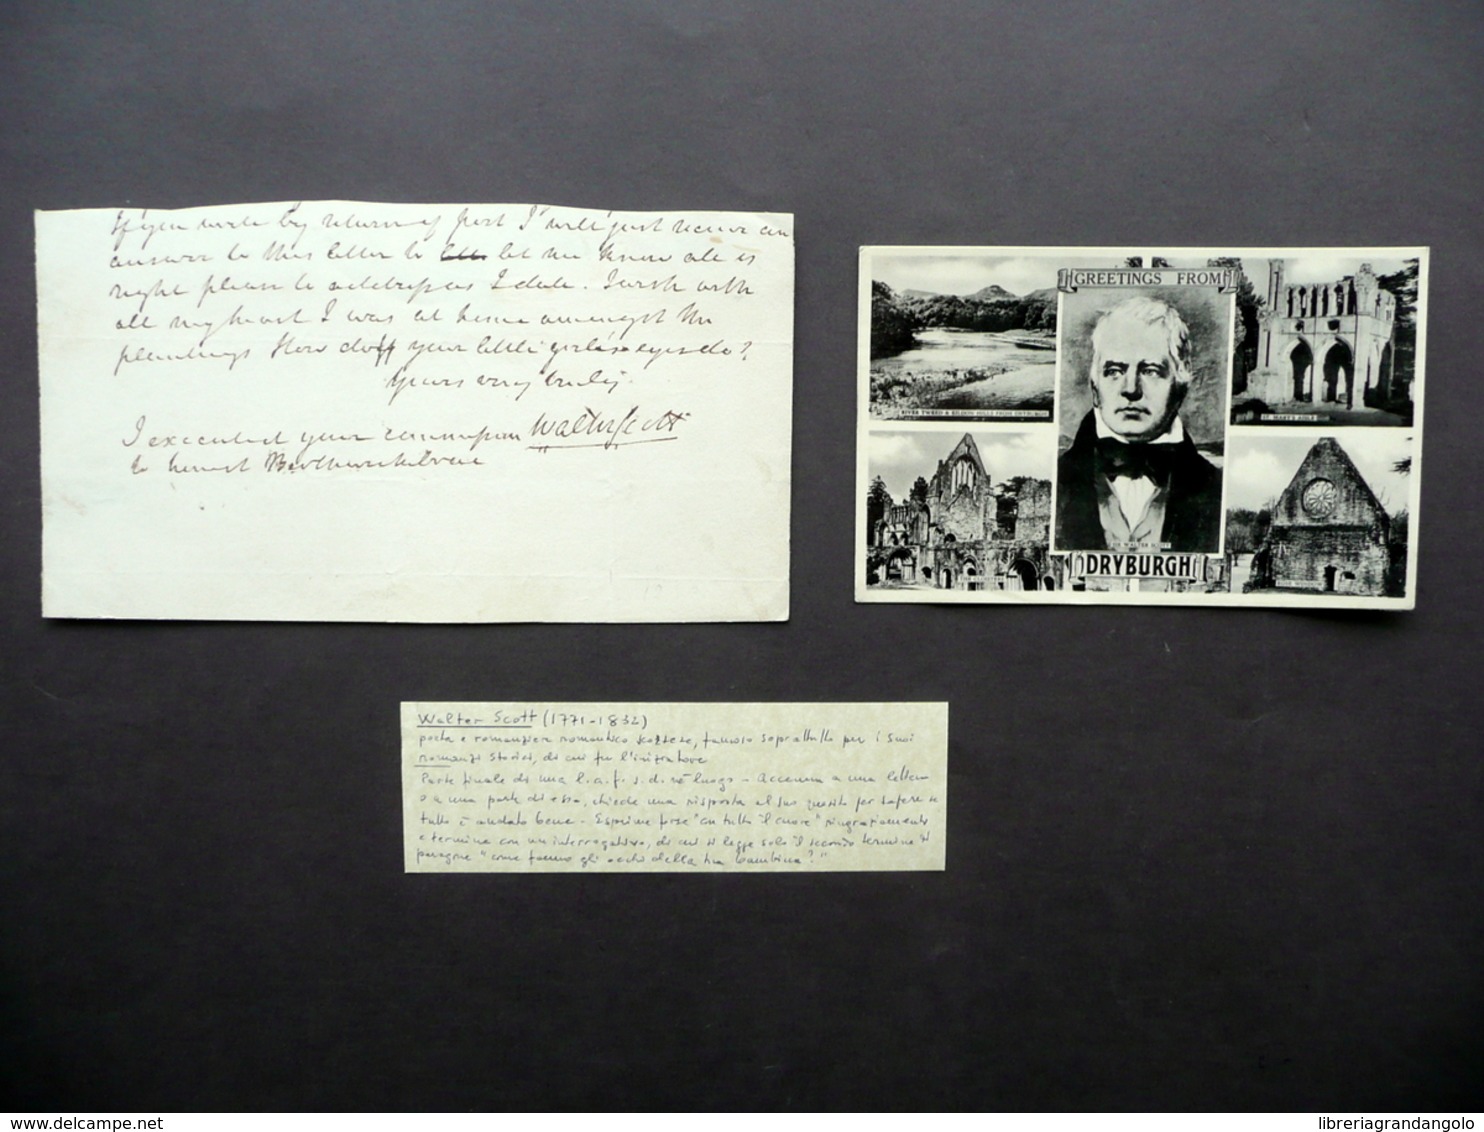 If you write by return of post I will just receive an
answer to this letter to let me know all is
right please to address as I date. I wish with
all my heart I was at home amongst the
plantings How do your little girls eyes do?
Yours very truly
Walter Scott
I executed your commission
to honest
GREETINGS FROM
RIVER TWEED & EILDON HILLS FROM DRYBURGH
ST. MARY'S AISLE
SIR WALTER SCOTT
DRYBURGH
Walter Scott (1771-1832)
poeta e romanziere romantico scozzese, famoso soprattutto per i suoi
romanzi storici, di cui fu l'iniziatore
Parte finale di una l.a.f. s.d. né luogo - Accenna a una lettera
o a una parte di essa, chiede una risposta al suo quesito per sapere se
tutto è andato bene - Esprime forse "con tutto il cuore" ringraziamento
e termina con un interrogativo, di cui si legge solo il secondo termine di
paragone "come fanno gli occhi della tua bambina?"
delcampe.net
libreriagrandangolo